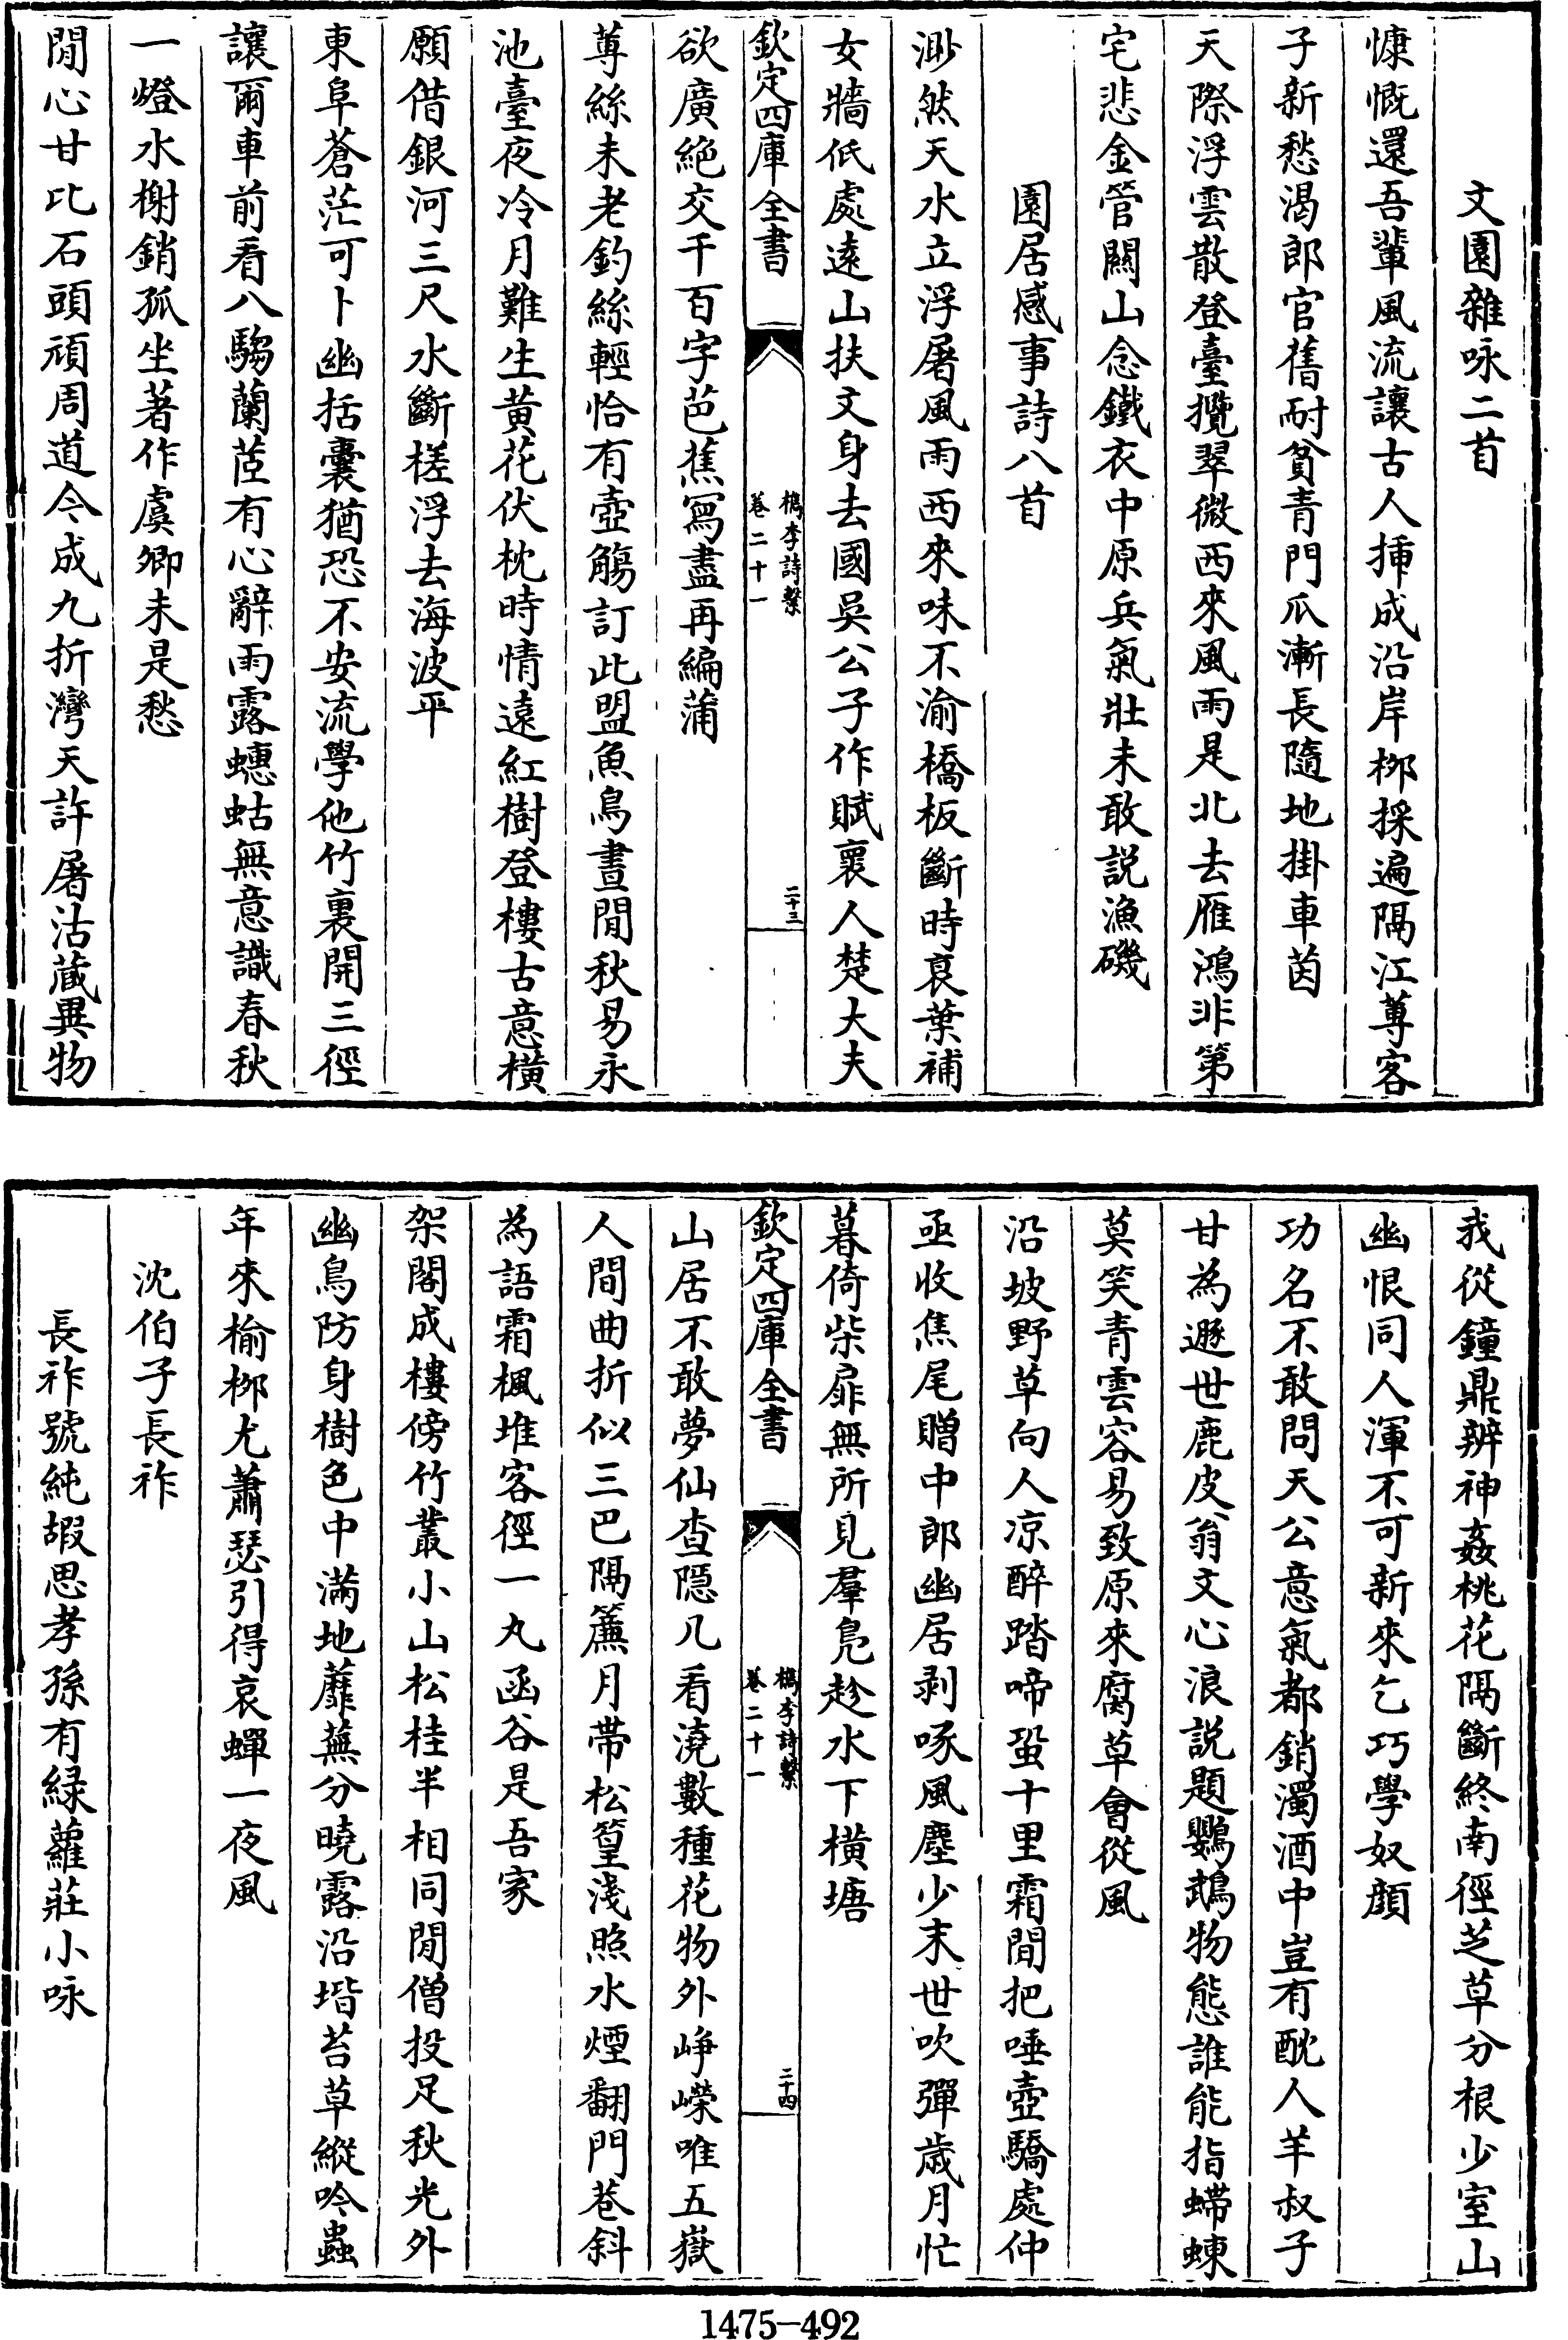 文園雜咏二首
慷慨還吾輩風流讓古人揷成沿岸栁採遍隔江蓴客
子新愁渴郎官舊耐貧青門瓜漸長隨地掛車茵
天際浮雲散登臺攬翠微西來風雨是北去雁鴻非第
宅悲金管關山念鐵衣中原兵氣壯未敢説漁磯
園居感事詩八首
渺然天水立浮屠風雨西來味不渝橋板斷時哀葉補
女牆低處遠山扶文身去國吳公子作賦襄人楚大夫
欽定四庫全書
檇李詩繫
卷二十一
二十三
欲廣絶交千百字芭蕉寫盡再編蒲
蓴絲未老釣絲輕恰有壺觴訂此盟魚鳥晝閒秋易永
池臺夜冷月難生黄花伏枕時情遠紅樹登樓古意橫
願借銀河三尺水斷槎浮去海波平
東阜蒼茫可卜幽括囊猶恐不安流學他竹裏開三徑
讓爾車前看八騶蘭茝有心辭雨露蟪蛄無意識春秋
一燈水榭銷孤坐著作虞卿未是愁
閒心甘比石頭頑周道今成九折灣天許屠沽藏異物
我從鐘鼎辨神姦桃花隔斷終南徑芝草分根少室山
幽恨同人渾不可新來乞巧學奴顔
功名不敢問天公意氣都銷濁酒中豈有酖人羊叔子
甘為遯世鹿皮翁文心浪説題鸚鵡物態誰能指蝃蝀
莫笑青雲容易致原來腐草會從風
沿坡野草向人凉醉踏啼蛩十里霜閒把唾壺驕處仲
亟收焦尾贈中郎幽居剥啄風塵少末世吹彈歲月忙
暮倚柴扉無所見羣鳧趁水下橫塘
欽定四庫全書
檇李詩繫
卷二十一
二十四
山居不敢夢仙查隠几看澆數種花物外崢嶸唯五嶽
人間曲折似三巴隔簾月帶松篁淺照水煙翻門巷斜
為語霜楓堆客徑一丸函谷是吾家
架閣成樓傍竹叢小山松桂半相同閒僧投足秋光外
幽鳥防身樹色中滿地蘼蕪分曉露沿堦苔草縱吟蟲
年來榆栁尤蕭瑟引得哀蟬一夜風
沈伯子長祚
長祚號純嘏思孝孫有緑蘿莊小咏
1475-492